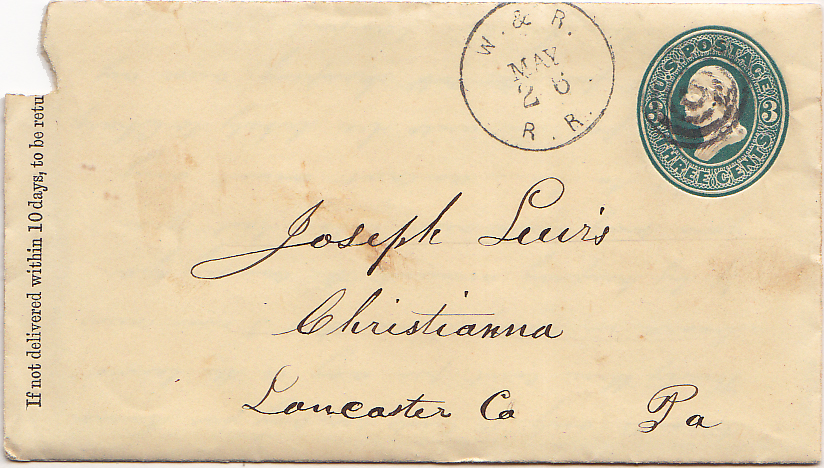 W. & R.
MAY
26
R. R.
U.S. POSTAGE
3 3
THREE CENTS
If not delivered within 10 days, to be retu
Joseph Lewis
Christianna
Lancaster Co Pa